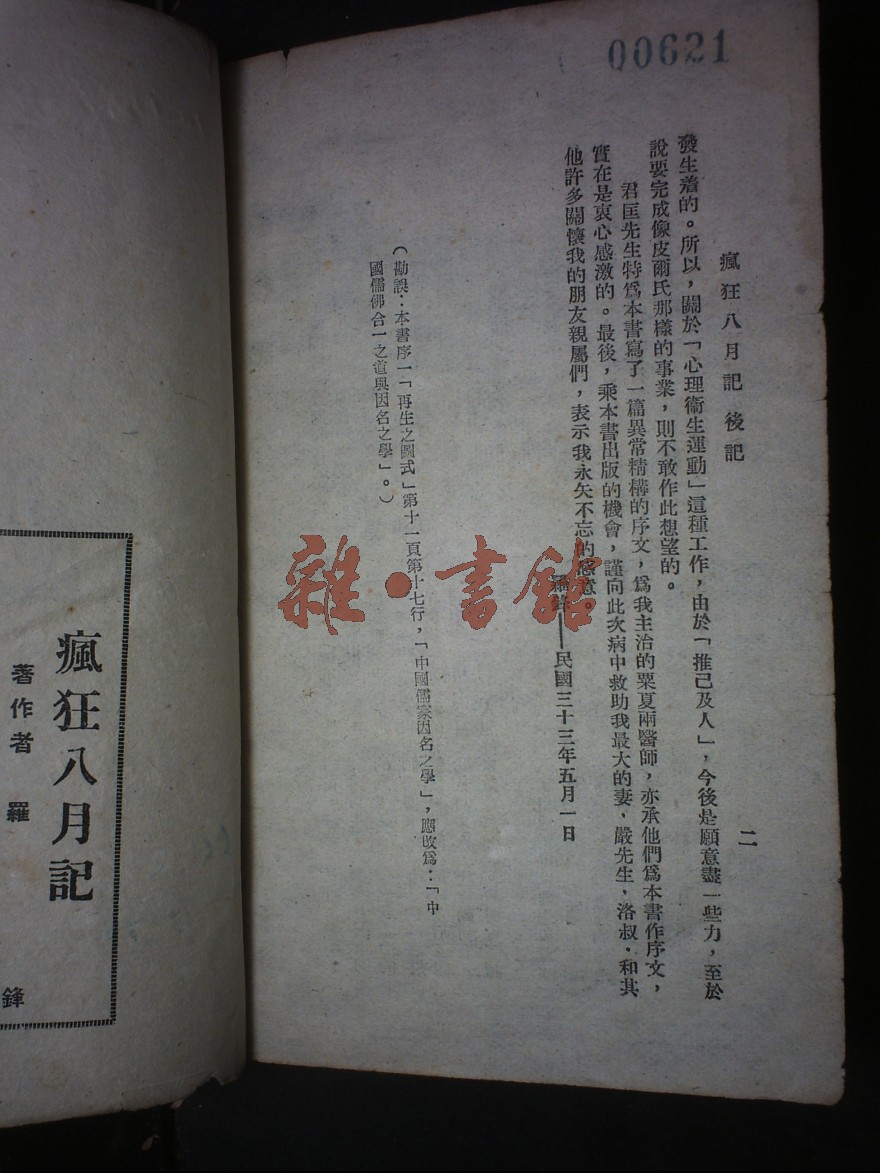 00621
瘋狂八月記後記
二
發生着的。所以，關於「心理衞生運動」這種工作，由於「推己及人」，今後是願意盡一些力，至於
說要完成像皮爾氏那樣的事業，則不敢作此想望的。
君匡先生特爲本書寫了一篇異常精構的序文，爲我主治的粟夏兩醫師，亦承他們爲本書作序文，
實在是衷心感激的。最後，乘本書出版的機會，謹向此次病中救助我最大的妻，嚴先生，洛叔，和其
他許多關懷我的朋友親屬們，表示我永矢不忘的感意。
——民國三十三年五月一日
（勘誤：本書序一「再生之圖式」第十一頁第十七行，「中國儒家因名之學」，應改爲：「中
國儒佛合一之道與因名之學」。）
瘋狂八月記
著作者 羅 鋒
雜·書館